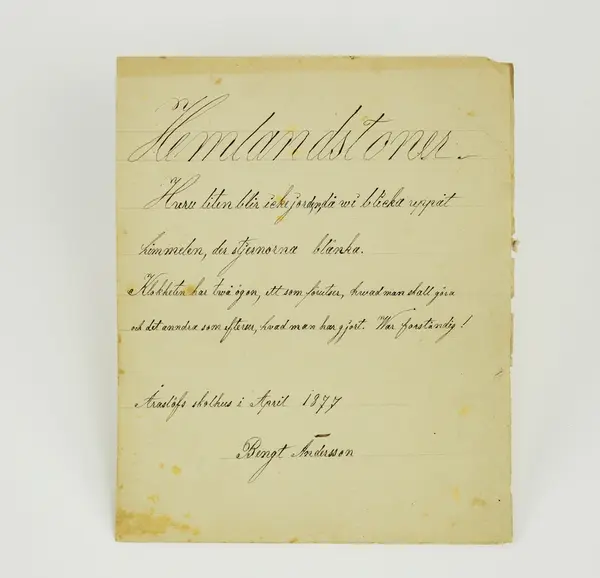 Hemlandstoner.
Huru liten blir icke jorden, då wi blicka uppåt
himmelen, der stjernorna blänka.
Klokheten har två ögon, ett som förutser, hwad man skall göra
och det anndra som efterser, hvad man har gjort. War förståndig!
Araslöfs skolhus i April 1877
Bengt Andersson